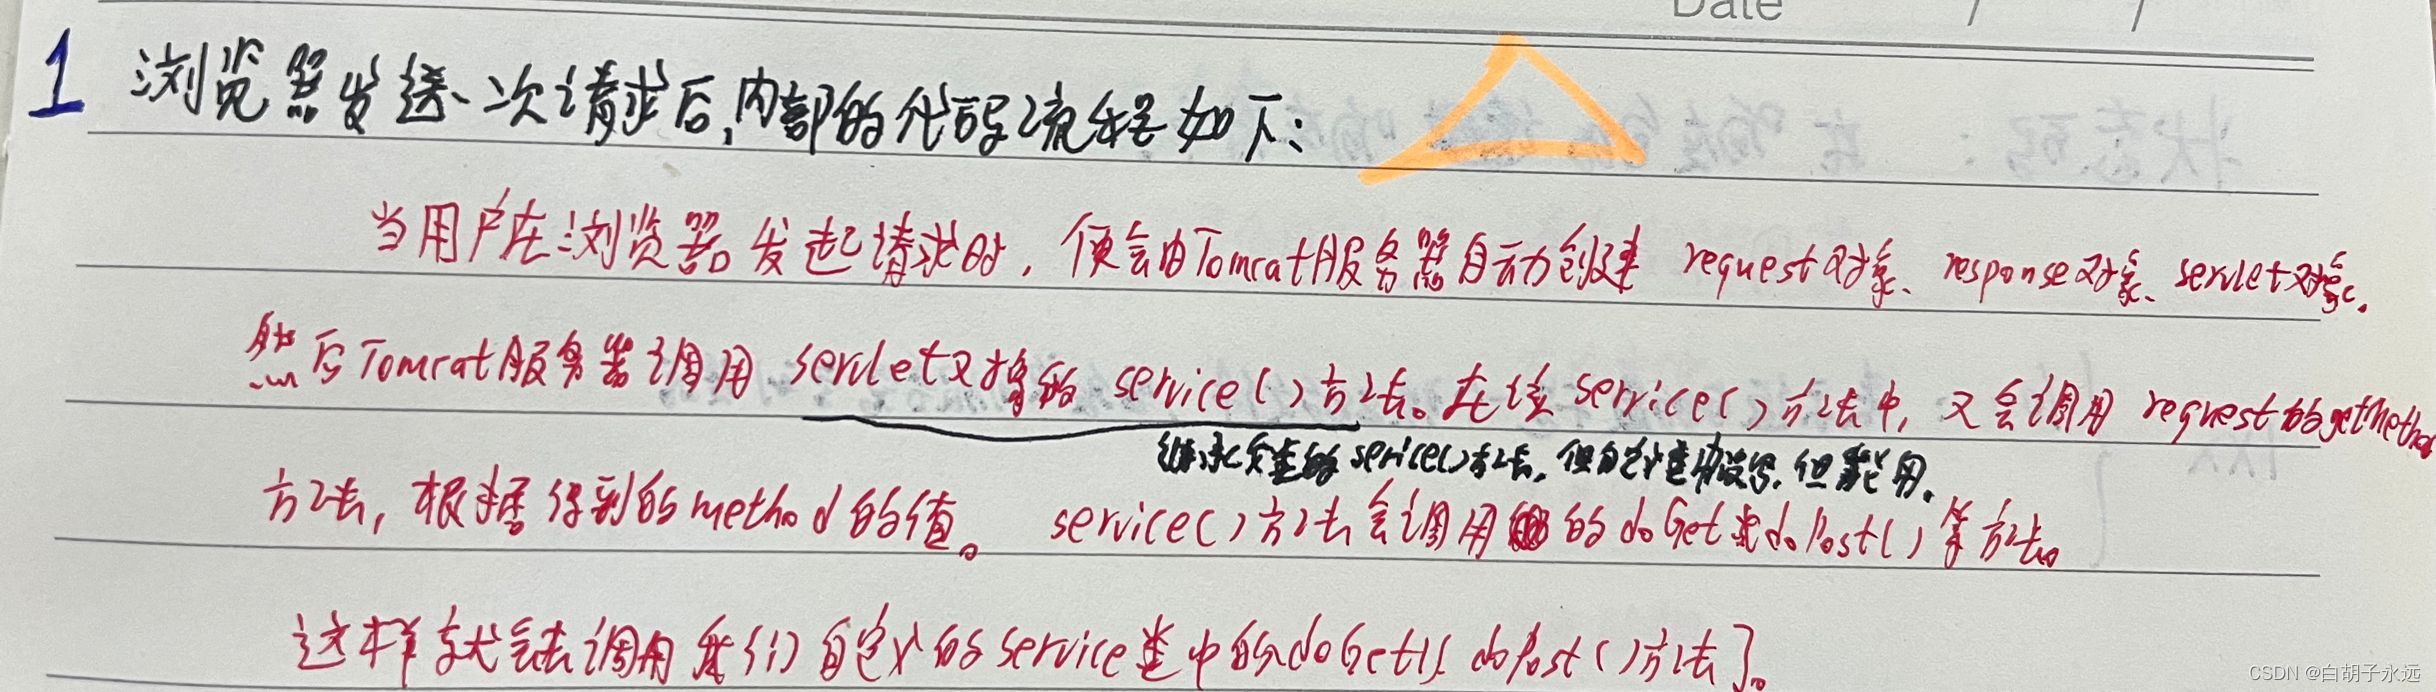 Date / /
1 浏览器发送一次请求后,内部的代码流程如下:
当用户在浏览器发起请求时,便会由Tomcat服务器自动创建 request对象、response对象、servlet对象。
然后Tomcat服务器调用 servlet对象的 service()方法。在该service()方法中,又会调用request的getMethod
继承父类的service()方法,但自定义类中没写,但能用。
方法,根据得到的method的值。 service()方法会调用的doGet或doPost()等方法。
这样就会去调用我们自定义的service类中的doGet() doPost()方法了。
CSDN @白胡子永远